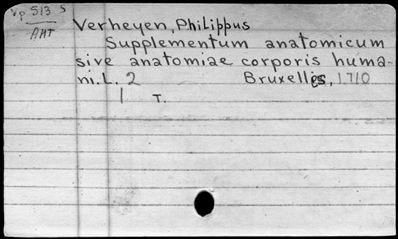 Vp 513 S
AHT
Verheyen, Philippus
Supplementum anatomicum
sive anatomiae corporis huma-
ni. L. 2 Bruxelles, 1710
1 T.